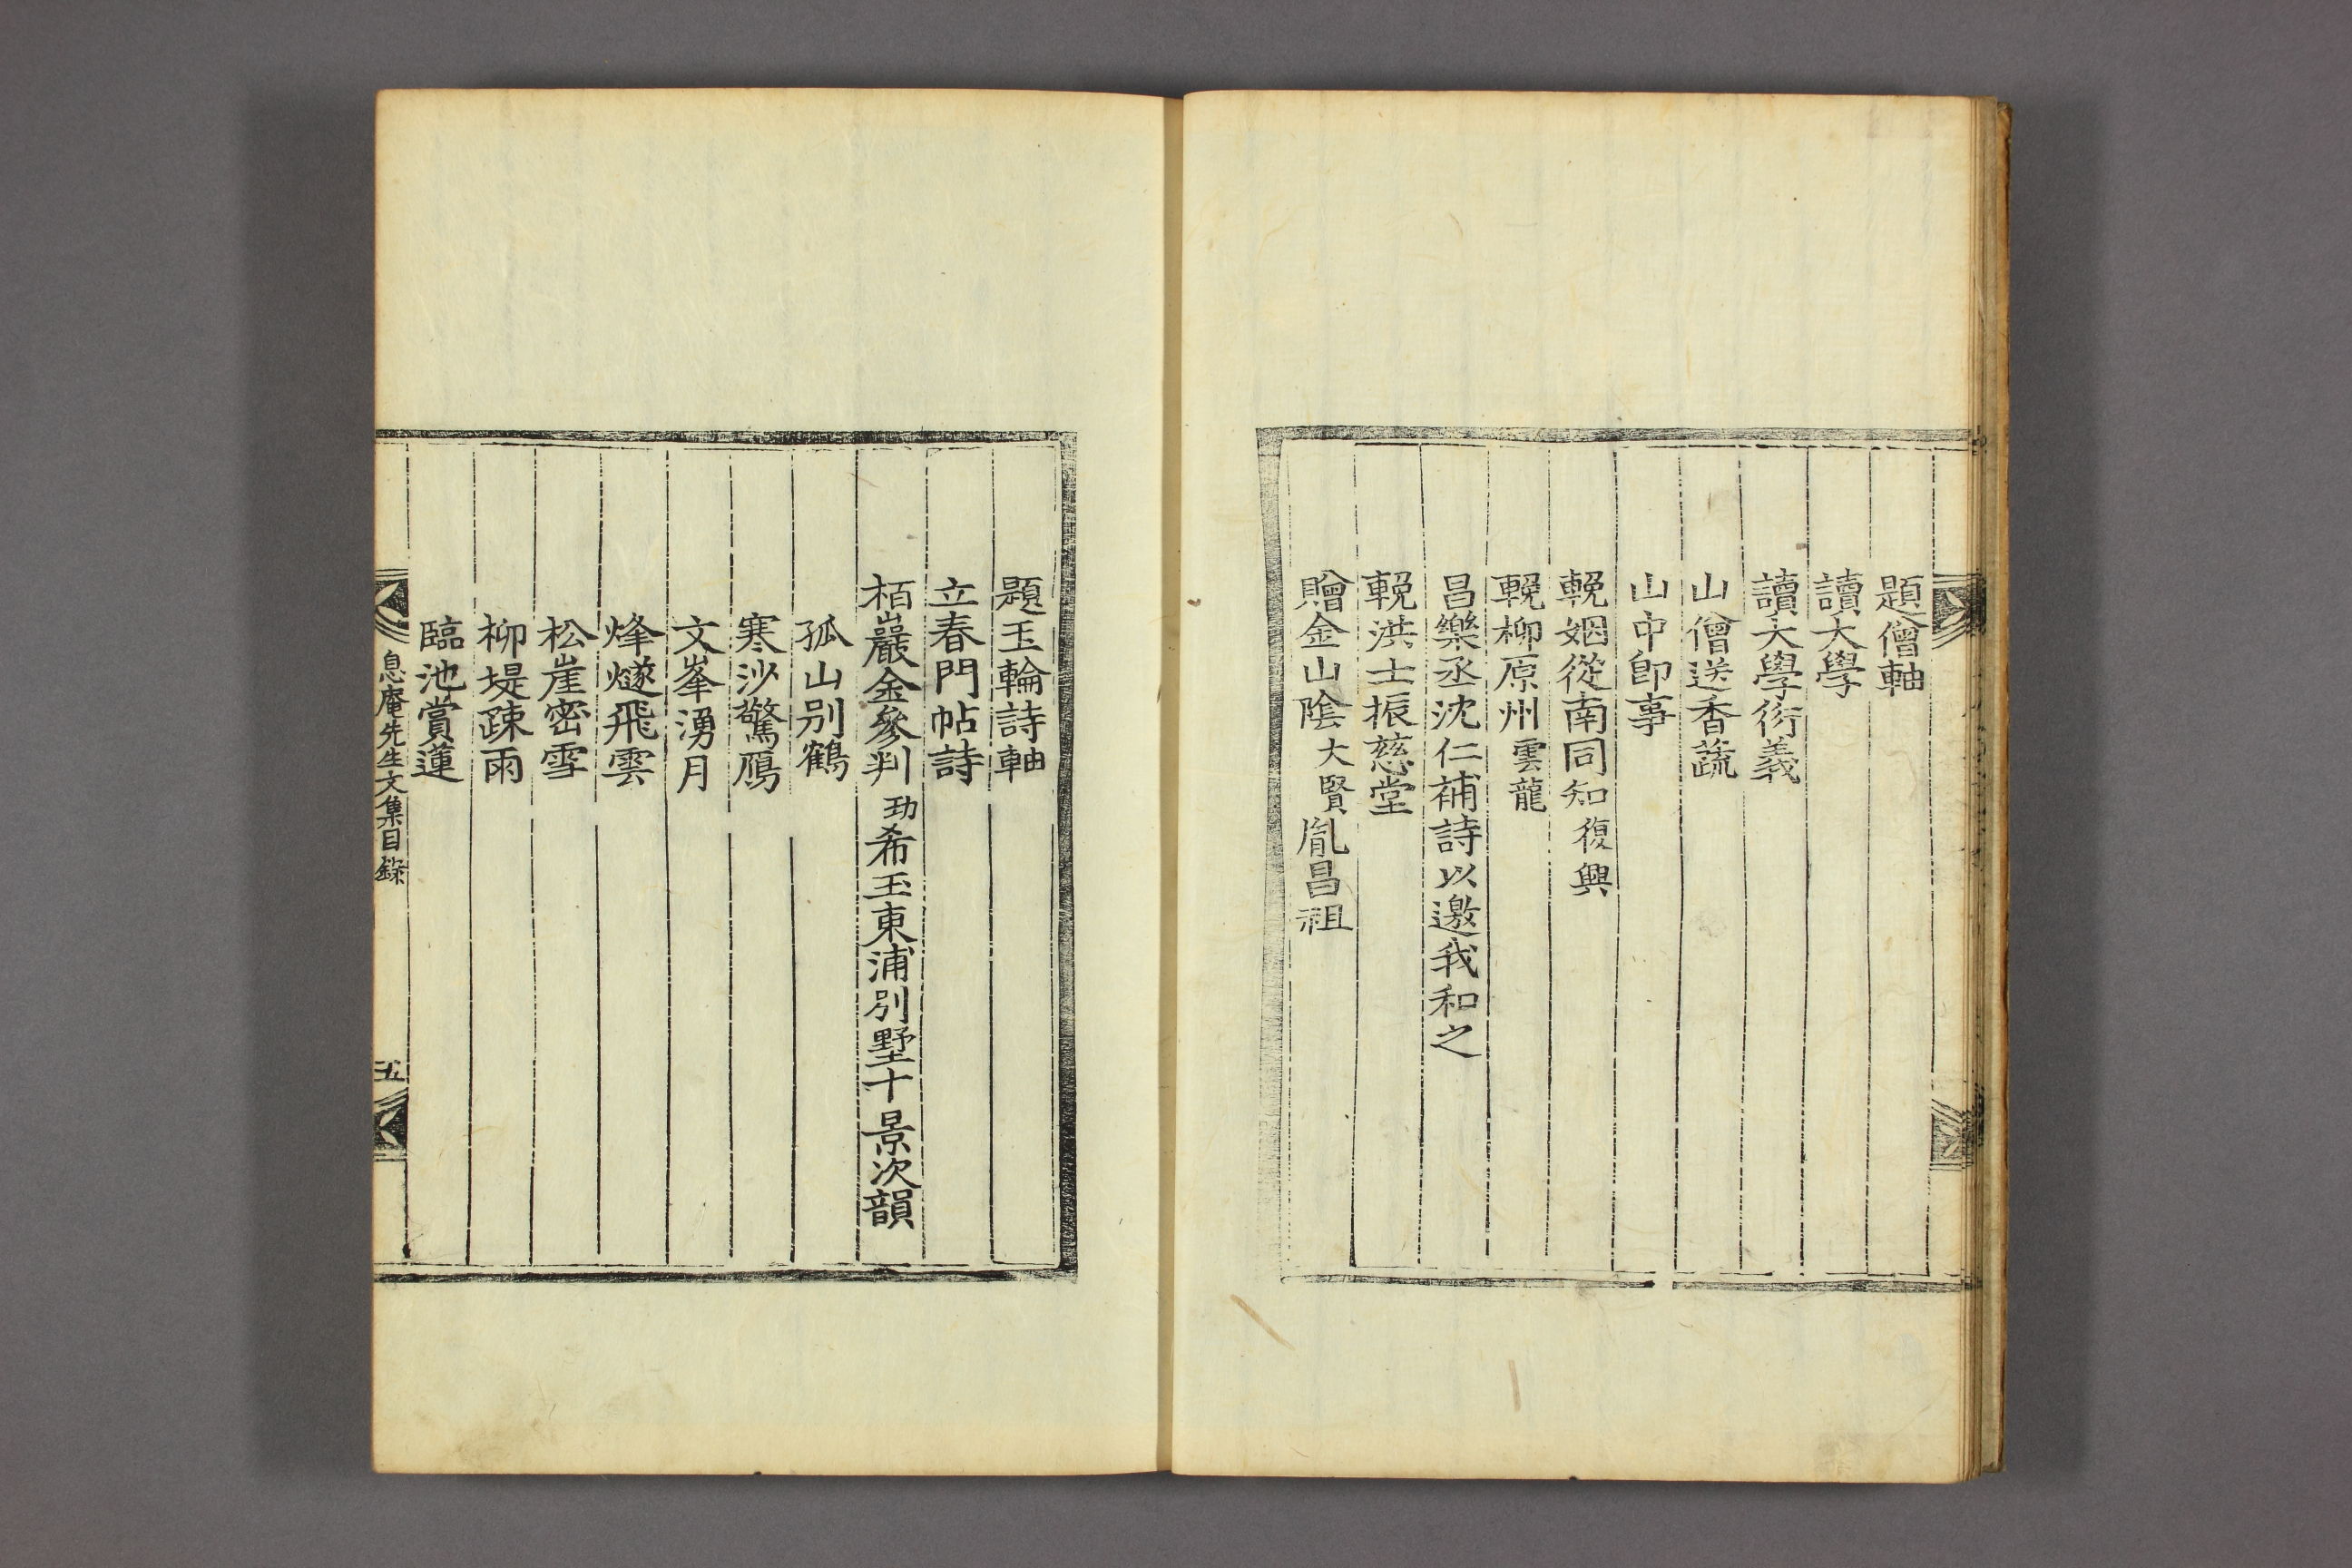 題僧軸
讀大學
讀大學衍義
山僧送香蔬
山中卽事
輓姻從南同知復興
輓柳原州雲龍
昌樂丞沈仁補詩以邀我和之
輓洪士振慈堂
贈金山陰大賢胤昌祖
題玉輪詩軸
立春門帖詩
栢巖金參判玏希玉東浦別墅十景次韻
孤山別鶴
寒沙驚鴈
文峯湧月
烽燧飛雲
松崖密雪
柳堤踈雨
臨池賞蓮
息庵先生文集目錄
五